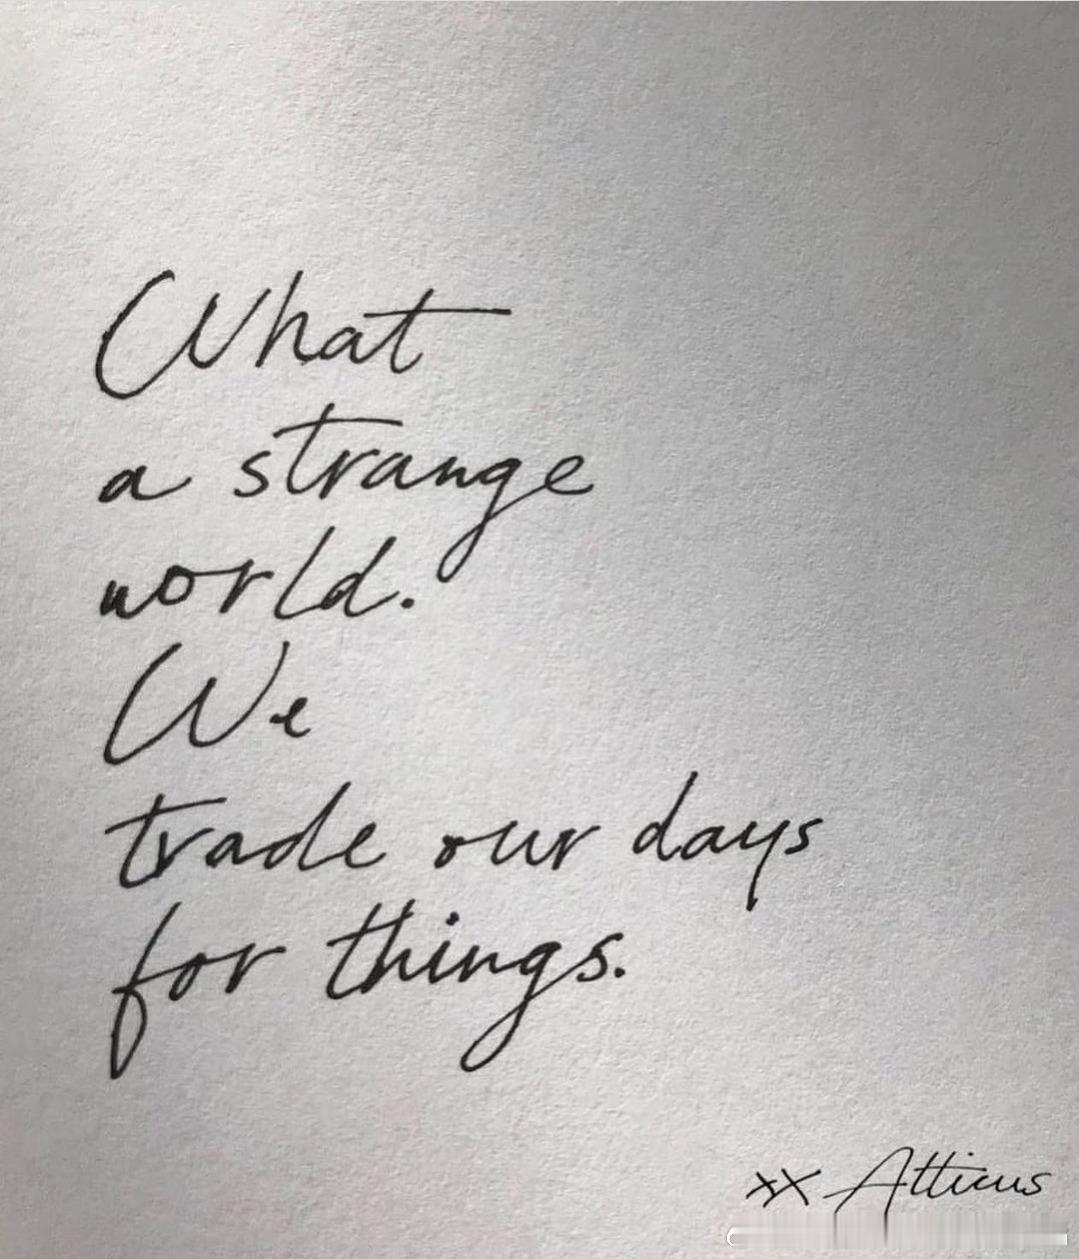 What
a strange
world.
We
trade our days
for things.
xx Atticus